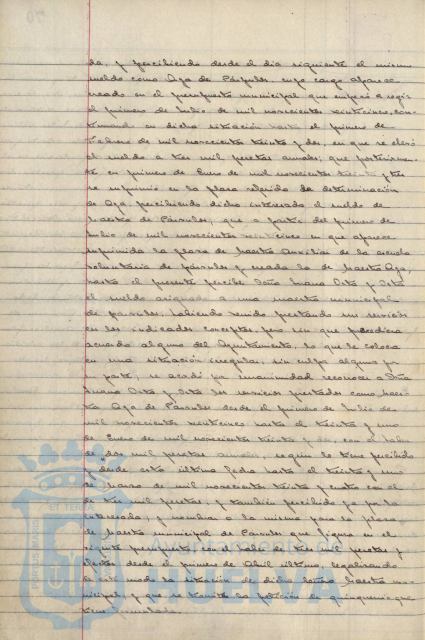 da, y percibiendo desde el dia siguiente el mismo
sueldo como Aya de Párvulos, cuyo cargo aparece
creado en el presupuesto municipal que empezó a regir
el primero de Julio de mil novecientos veinticinco, con-
tinuando en dicha situación hasta el primero de
Febrero de mil novecientos treinta y dos, en que se elevó
el sueldo a tres mil pesetas anuales; que posteriormen-
te en primero de Enero de mil novecientos treinta y tres
se suprimió en la plaza referida la determinación
de Aya, percibiendo dicha interesada el sueldo de
Maestra de Párvulos; que a partir del primero de
Julio de mil novecientos veinticinco en que aparece
suprimida la plaza de Maestra Auxiliar de la escuela
voluntaria de párvulos y creada la de Maestra Aya,
hasta el presente percibe Doña Juana Orta y Orta
el sueldo asignado a una maestra municipal
de párvulos, habiendo venido prestando sus servicios
en los indicados conceptos, pero sin que precediera
acuerdo alguno del Ayuntamiento, lo que le coloca
en una situación irregular, sin culpa alguna por
su parte; se acordó por unanimidad reconocer a Doña
Juana Orta y Orta los servicios prestados como Maes-
tra Aya de Párvulos desde el primero de Julio de
mil novecientos veinticinco hasta el treinta y uno
de Enero de mil novecientos treinta y dos, con el haber
de dos mil pesetas anuales, según lo tiene percibido
y desde esta última fecha hasta el treinta y uno
de Marzo de mil novecientos treinta y cuatro con el
de tres mil pesetas, y también percibido ya por la
interesada; y nombrar a la misma para la plaza
de Maestra municipal de Párvulos que figura en el
vigente presupuesto, con el haber de tres mil pesetas y
efectos desde el primero de Abril último, legalizando
de este modo la situación de dicha señora Maestra mu-
nicipal, y que se tramite la petición de quinquenios que
tiene formulada.
PORTUS MARIS
ET TERRAE
HUELVA